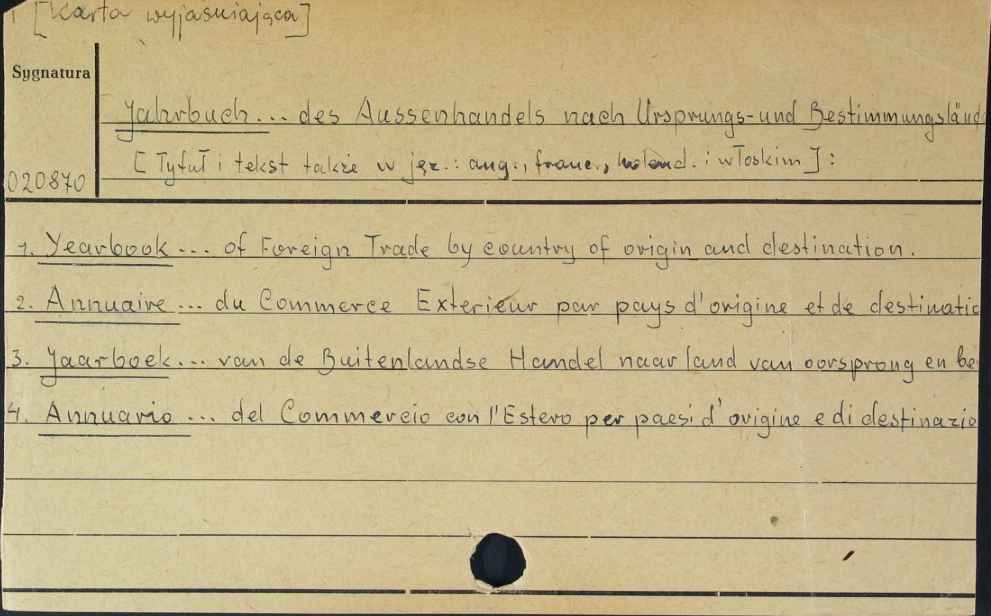 [Karta wyjaśniająca]
Sygnatura
Jahrbuch... des Aussenhandels nach Ursprungs- und Bestimmungsländ
[Tytuł i tekst także w jęz.: ang., franc., holend. i włoskim]:
020870
1. Yearbook... of Foreign Trade by country of origin and destination.
2. Annuaire... du Commerce Exterieur par pays d'origine et de destinatio
3. Jaarboek... van de Buitenlandse Handel naar land van oorsprong en be
4. Annuario... del Commercio con l'Estero per paesi d'origine e di destinazio